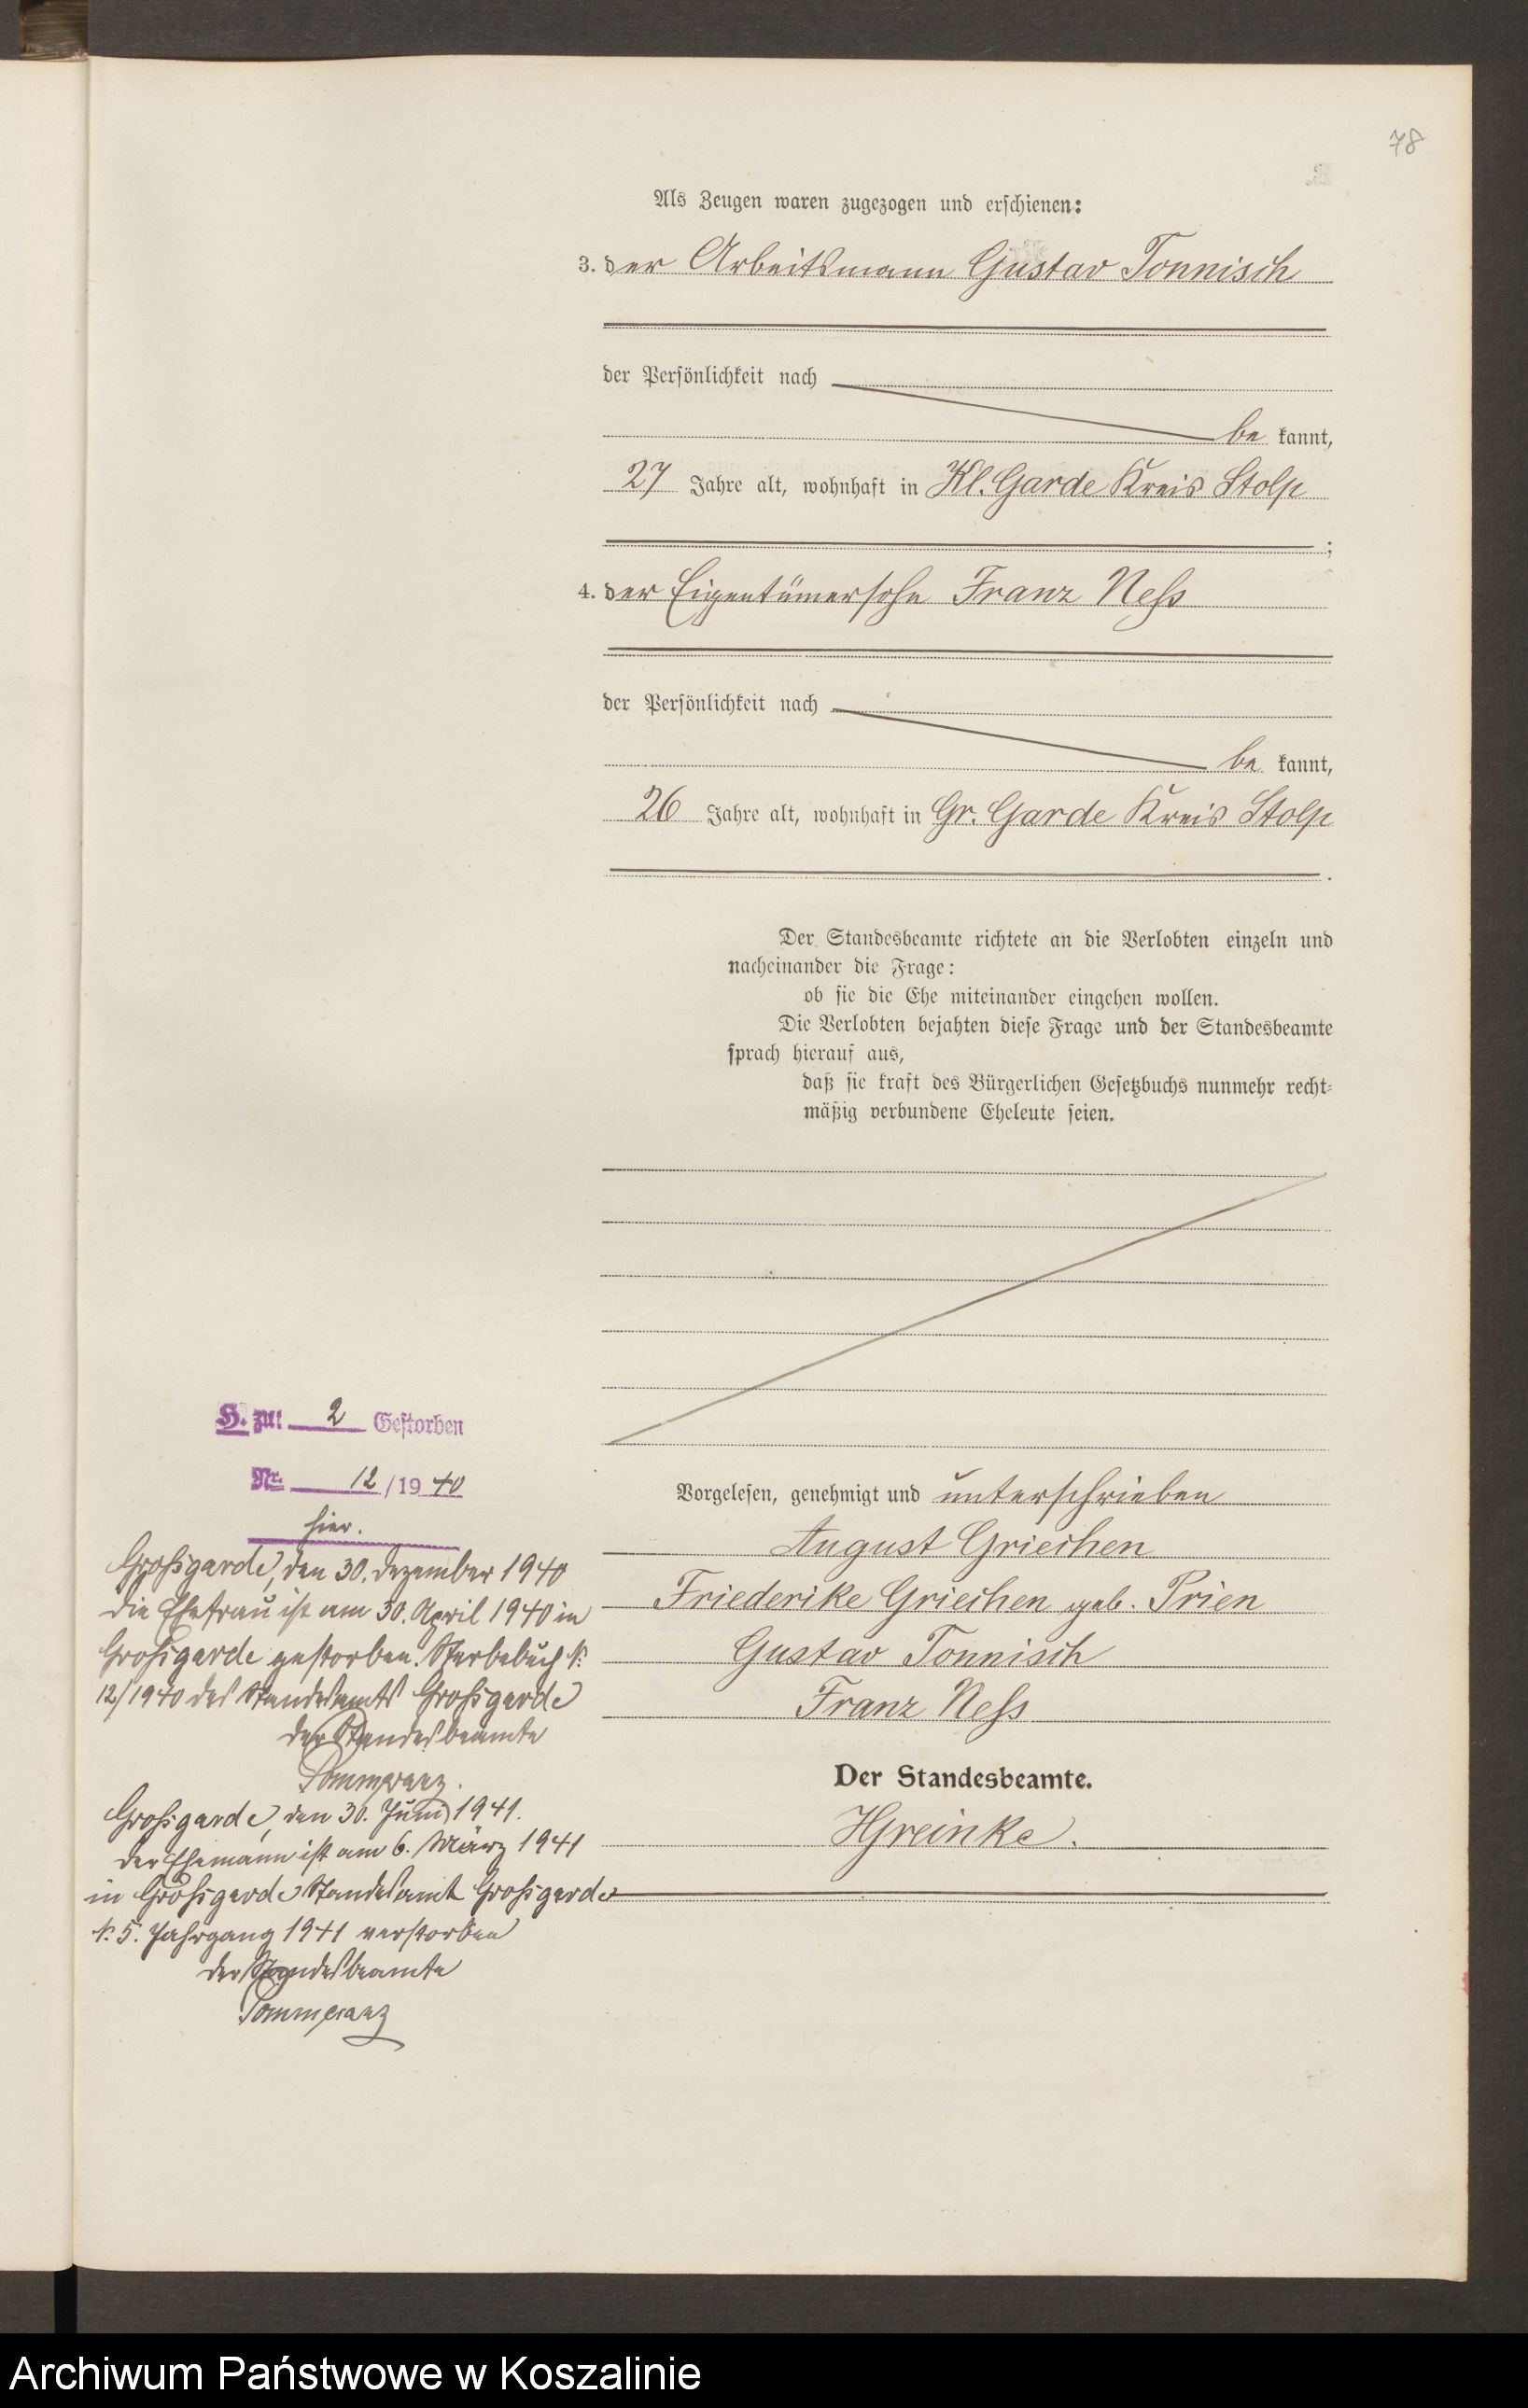 78
Als Zeugen waren zugezogen und erschienen:
3. der Arbeitsmann Gustav Tonnisch
der Persönlichkeit nach
be kannt,
27 Jahre alt, wohnhaft in Kl. Garde Kreis Stolp
;
4. der Eigentümersohn Franz Neß
der Persönlichkeit nach
be kannt,
26 Jahre alt, wohnhaft in Gr. Garde Kreis Stolp
.
Der Standesbeamte richtete an die Verlobten einzeln und
nacheinander die Frage:
ob sie die Ehe miteinander eingehen wollen.
Die Verlobten bejahten diese Frage und der Standesbeamte
sprach hierauf aus,
daß sie kraft des Bürgerlichen Gesetzbuchs nunmehr recht-
mäßig verbundene Eheleute seien.
Vorgelesen, genehmigt und unterschrieben
August Griechen
Friederike Griechen geb. Prien
Gustav Tonnisch
Franz Neß
Der Standesbeamte.
HGreinke.
H. zu: 2 Gestorben
Nr. 12/1940
hier.
Großgarde, den 30. Dezember 1940
Die Ehefrau ist am 30. April 1940 in
Großgarde gestorben. Sterbebuch Nr.
12/1940 des Standesamts Großgarde
Der Standesbeamte
Pommeranz.
Großgarde, den 30. Juni 1941.
Der Ehemann ist am 6. März 1941
in Großgarde Standesamt Großgarde
Nr. 5. Jahrgang 1941 verstorben
Der Standesbeamte
Pommeranz
Archiwum Państwowe w Koszalinie